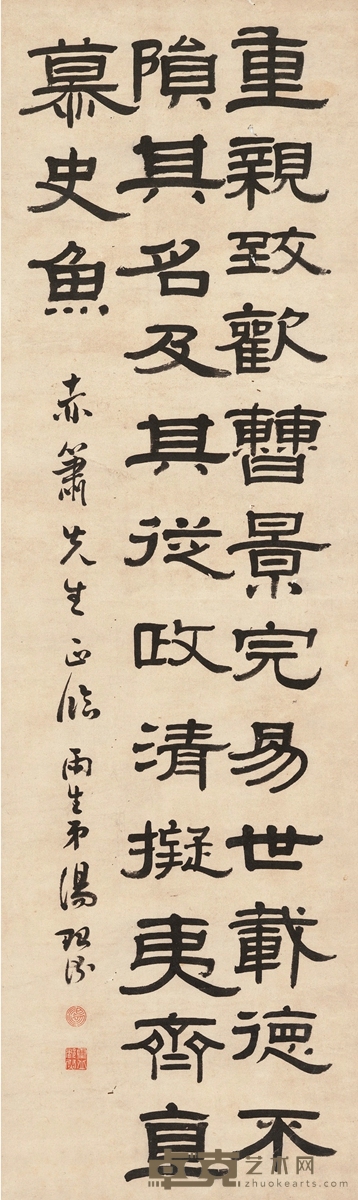 重親致歡曹景完易世載德不
隕其名及其從政清擬夷齊直
慕史魚
赤簫先生正臨 雨生弟湯貽汾
卓克艺术网
zhuokearts.com